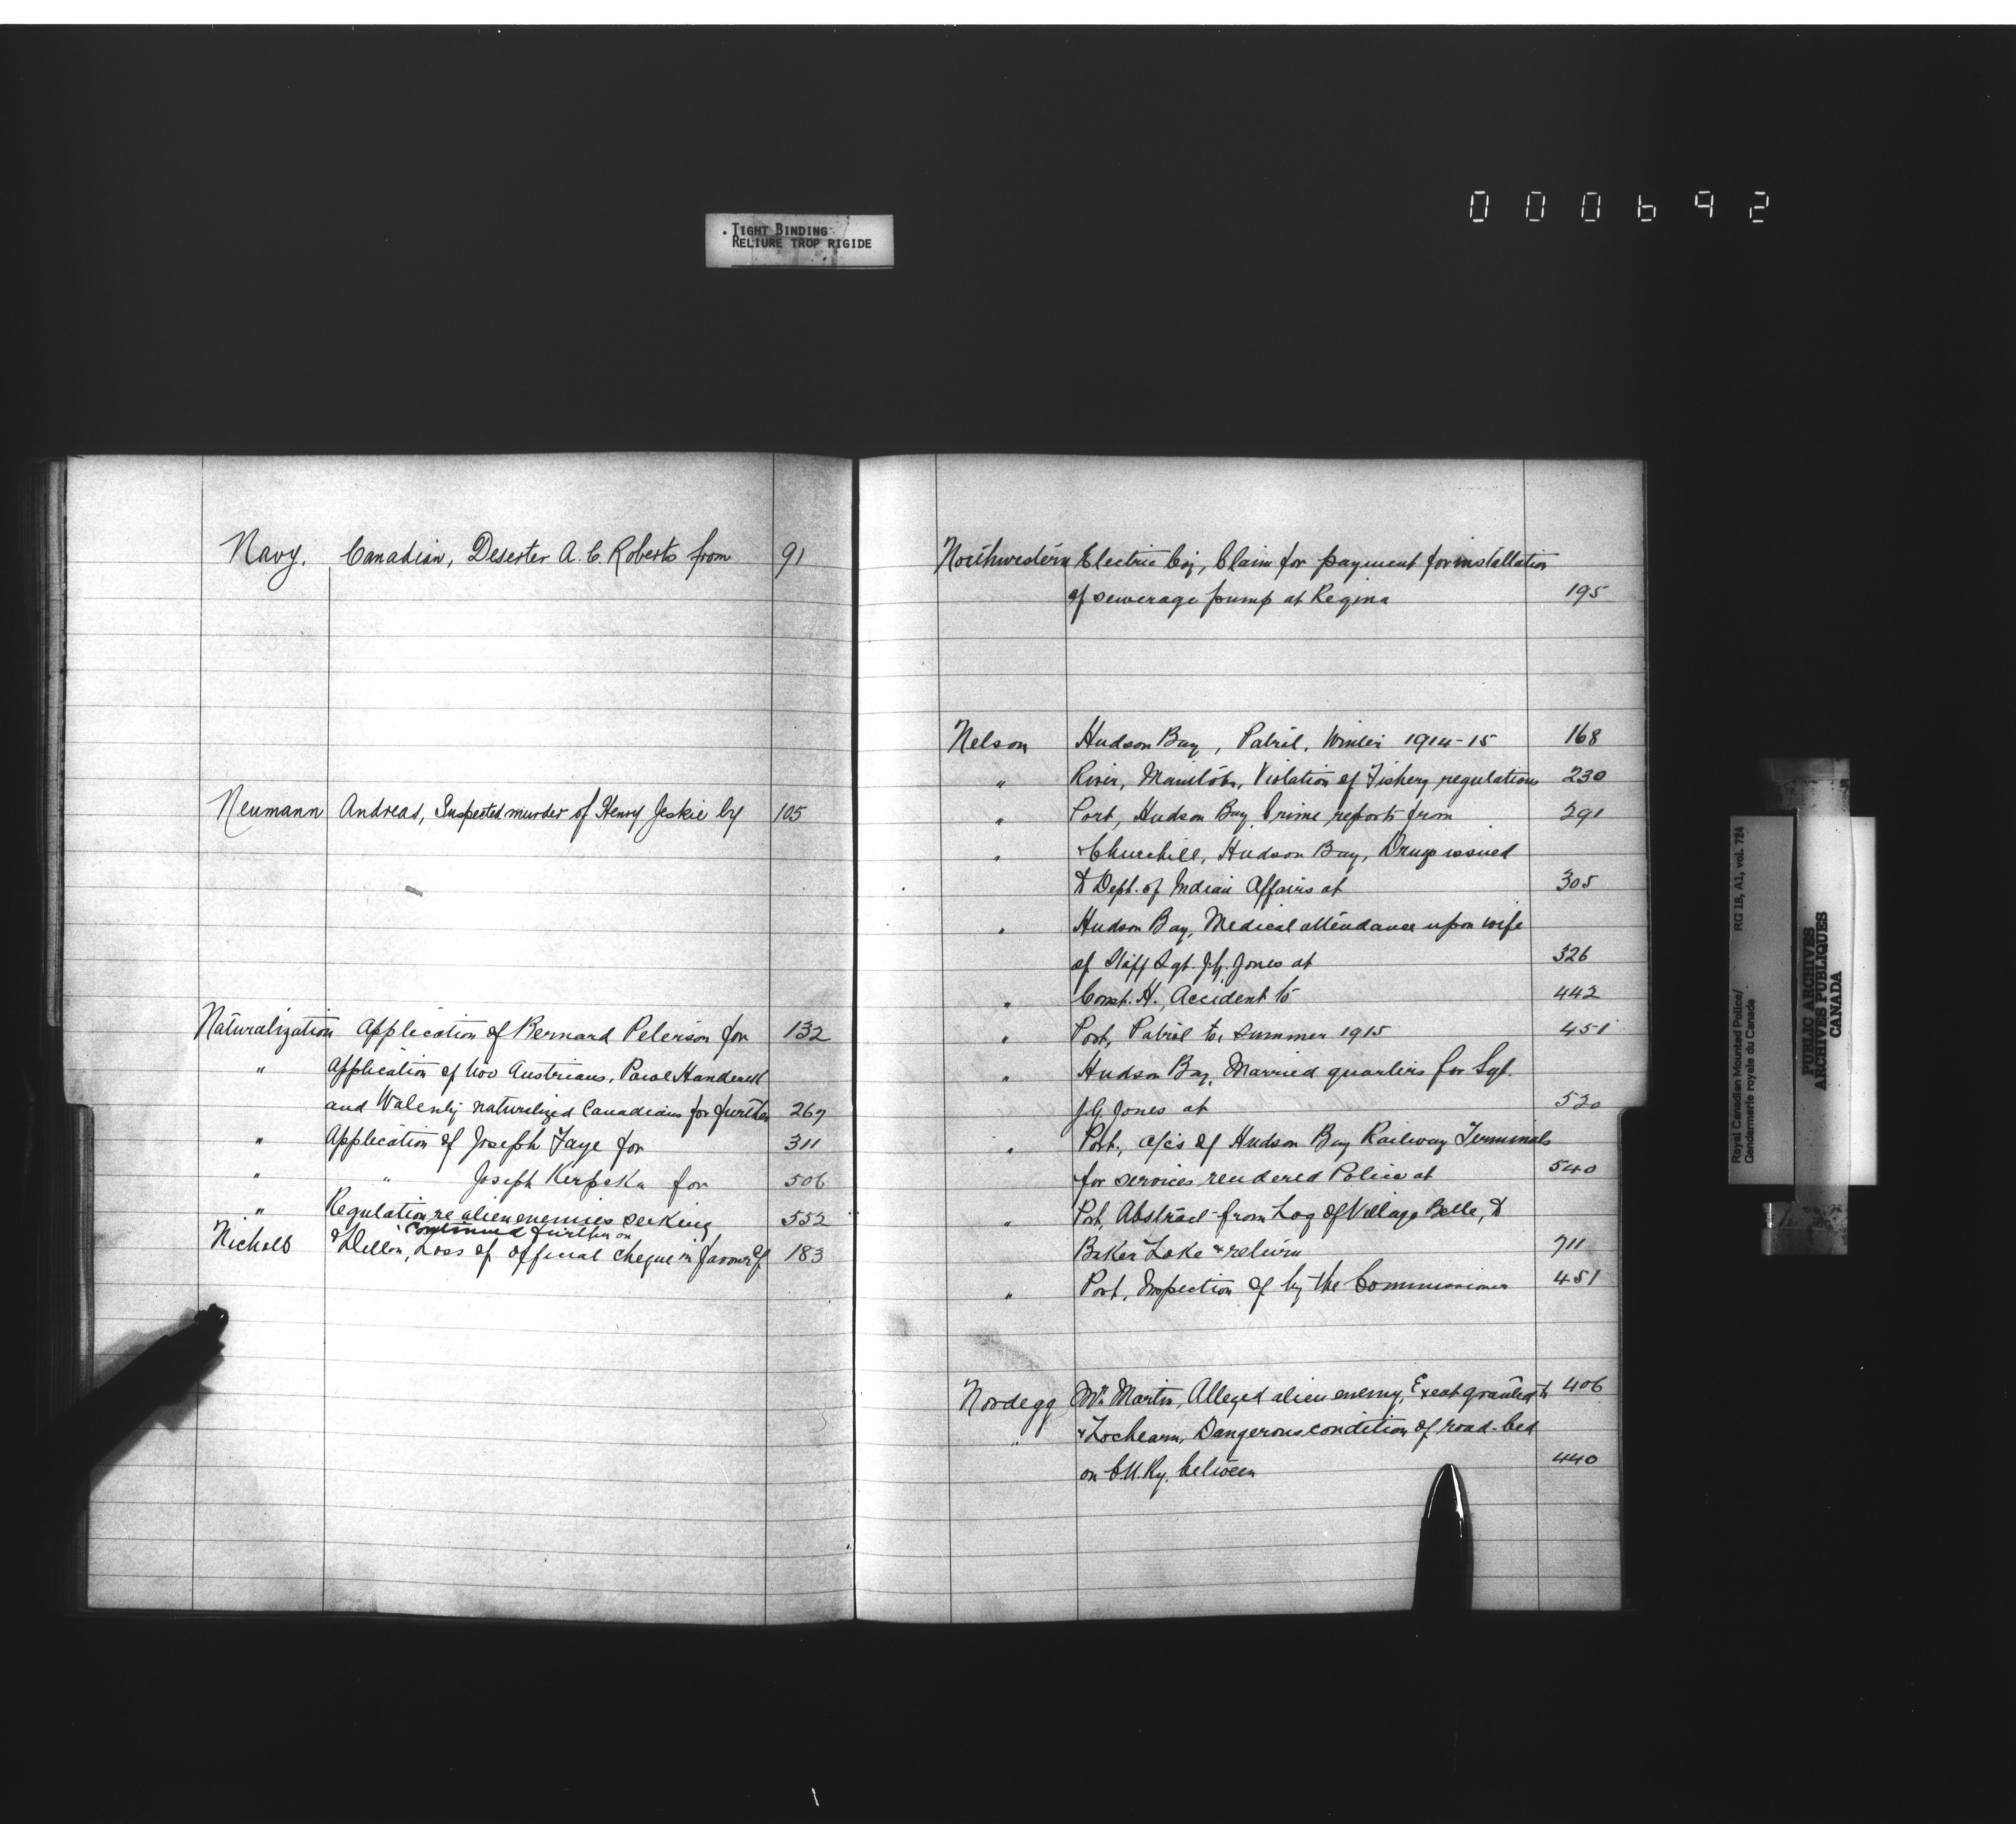 000692
TIGHT BINDING
RELIURE TROP RIGIDE
Navy. Canadian, Deserter A. C. Roberts from 91
Neumann Andreas, Suspected murder of Henry Jeskie by 105
Naturalization Application of Bernard Peterson for 132
" Application of two Austrians, Pawel
and naturalized Canadians for further 267
" Application of Joseph Faye for 311
" " Joseph Kerpska for 506
" Regulation re alien enemies seeking 552
Continued further on
Nichols & Dillon, Loss of official cheque in favour of 183
Northwestern Electric Coy, Claim for payment for installation
of sewerage pump at Regina 195
Nelson Hudson Bay, Patrol, Winter 1914-15 168
" River, Manitoba, Violation of Fishery regulations 230
" Port, Hudson Bay, Crime reports from 291
" & Churchill, Hudson Bay, Drugs issued
to Dept. of Indian Affairs at 305
" Hudson Bay, Medical attendance upon wife
of Staff Sgt. J.G. Jones at 326
" Const. H., Accident to 442
" Port, Patrol to, Summer 1915 451
" Hudson Bay, Married quarters for Sgt.
J G Jones at 520
" Port, a/cs of Hudson Bay Railway Terminals
for services rendered Police at 540
" Port, Abstract from Log of Village Belle, to
Baker Lake & return 711
" Port, Inspection of by the Commissioner 451
Nordegg Mr. Martin, Alleged alien enemy, Exeat granted to 406
" & Lochearn, Dangerous condition of road-bed
on C.N. Ry. between 440
Royal Canadian Mounted Police/ RG 18, A1, vol. 724
Gendarmerie royale du Canada
PUBLIC ARCHIVES
ARCHIVES PUBLIQUES
CANADA